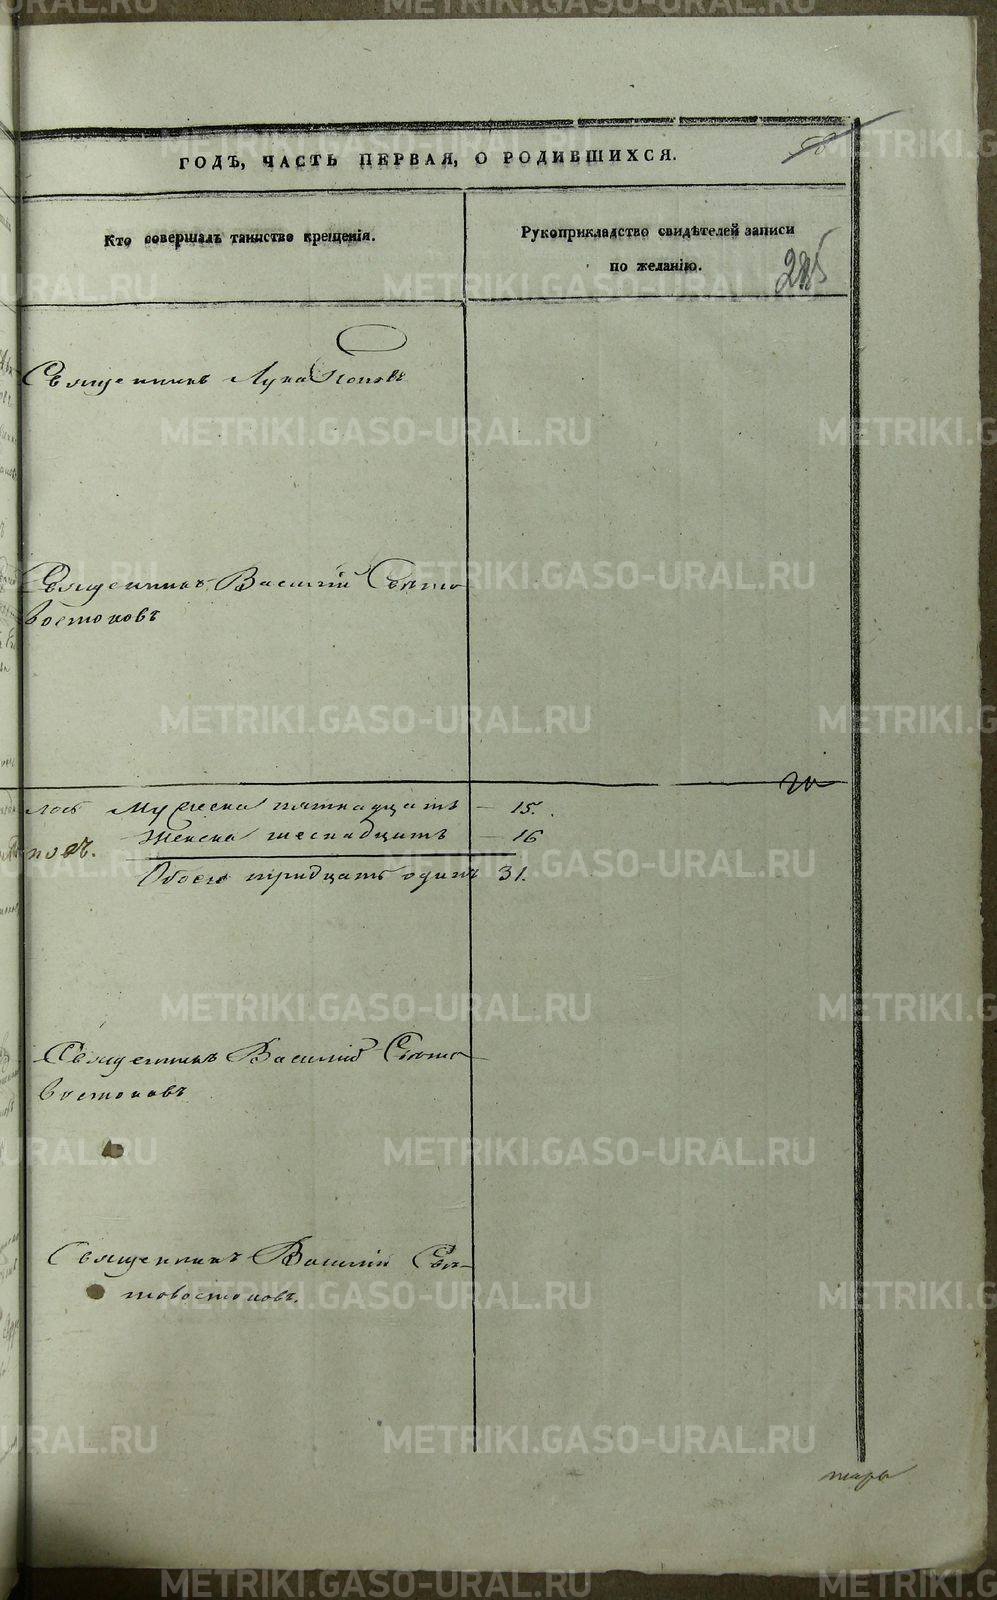 ГОДЪ, ЧАСТЬ ПЕРВАЯ, О РОДИВШИХСЯ.
Кто совершалъ таинство крещенія.
Рукоприкладство свидѣтелей записи
по желанію.
285
Священникъ Лука Поповъ
Священникъ Василій Свято
востоковъ
лось Мужеска пятнадцать — 15.
Женска шеснадцать — 16
полъ.
Обоего тридцать одинъ 31.
Священникъ Василій Свято
востоковъ
Священникъ Василій Свя-
товостоковъ.
METRIKI.GASO-URAL.RU